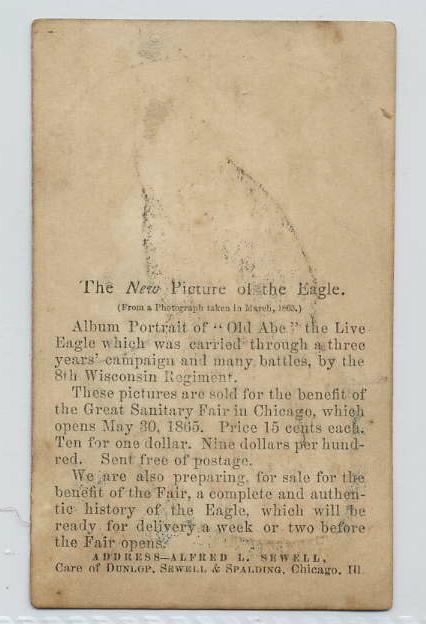 The New Picture of the Eagle.
(From a Photograph taken in March, 1865.)
Album Portrait of "Old Abe" the Live
Eagle which was carried through a three
years' campaign and many battles, by the
8th Wisconsin Regiment.
These pictures are sold for the benefit of
the Great Sanitary Fair in Chicago, which
opens May 30, 1865. Price 15 cents each.
Ten for one dollar. Nine dollars per hund-
red. Sent free of postage.
We are also preparing, for sale for the
benefit of the Fair, a complete and authen-
tic history of the Eagle, which will be
ready for delivery a week or two before
the Fair opens.
ADDRESS—ALFRED L. SEWELL,
Care of DUNLOP, SEWELL & SPALDING, Chicago, Ill